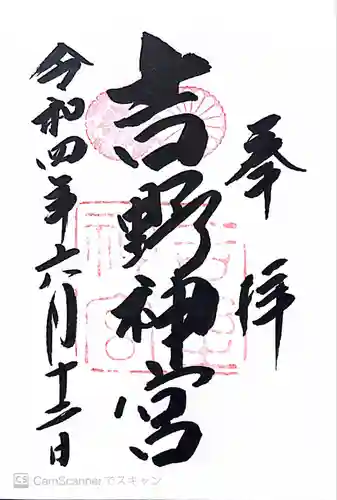 奉拝
吉野神宮
令和四年六月十二日
吉野神宮
CS CamScanner でスキャン